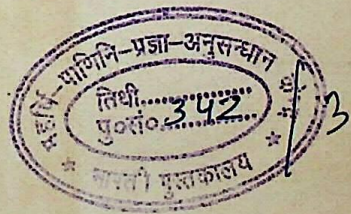 महर्षि-पाणिनि-प्रज्ञा-अनुसन्धान
तिथी..............
पु०सं०..342......
भारती पुस्तकालय
3